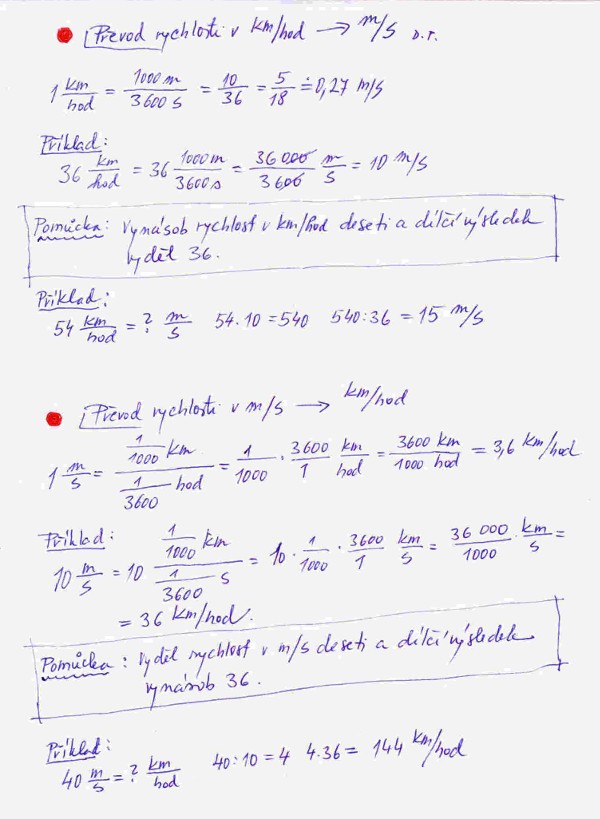 Převod rychlosti v km/hod → m/s
1 km/hod = 1000 m/3600 s = 10/36 = 5/18 ≐ 0,27 m/s
Příklad:
36 km/hod = 36 1000 m/3600 s = 36 000/3600 m/s = 10 m/s
Pomůcka: Vynásob rychlost v km/hod deseti a dílčí výsledek
vyděl 36.
Příklad:
54 km/hod = ? m/s 54.10 = 540 540:36 = 15 m/s
Převod rychlosti v m/s → km/hod
1 m/s = 1/1000 km / 1/3600 hod = 1/1000 . 3600/1 km/hod = 3600 km/1000 hod = 3,6 km/hod
Příklad:
10 m/s = 10 1/1000 km / 1/3600 s = 10 . 1/1000 . 3600/1 km/s = 36 000/1000 . km/s =
= 36 km/hod.
Pomůcka: Vyděl rychlost v m/s deseti a dílčí výsledek
vynásob 36.
Příklad:
40 m/s = ? km/hod 40:10 = 4 4.36 = 144 km/hod